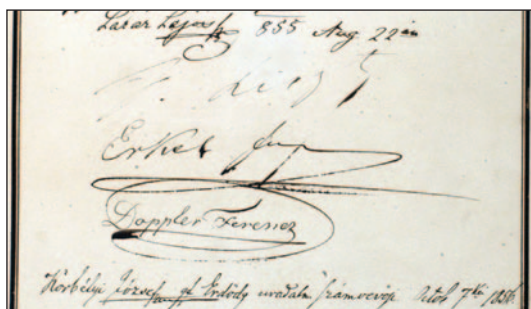 Lázár Lajos 855 Aug 22én
F. Liszt
Erkel
Doppler Ferenc
Körbélyi József gf. Erdődy uradalmi számvevője Octob 7kén 1856.